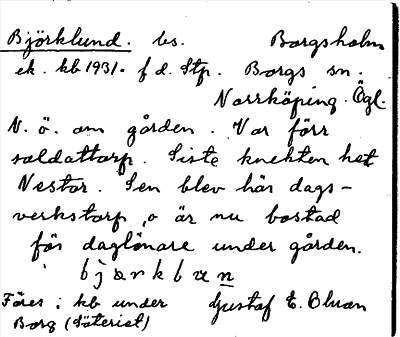 Björklund. bs. Borgsholm
ek. kb 1931. f d. Stp. Borgs sn.
Norrköping. Ögl.
N. ö. om gården. Var förr
soldattorp. Siste knekten het
Nestor. Sen blev här dags-
verkstorp, o är nu bostad
för daglönare under gården.
Föres i kb under Gustaf E. Oluan
Borg (Säteriet)